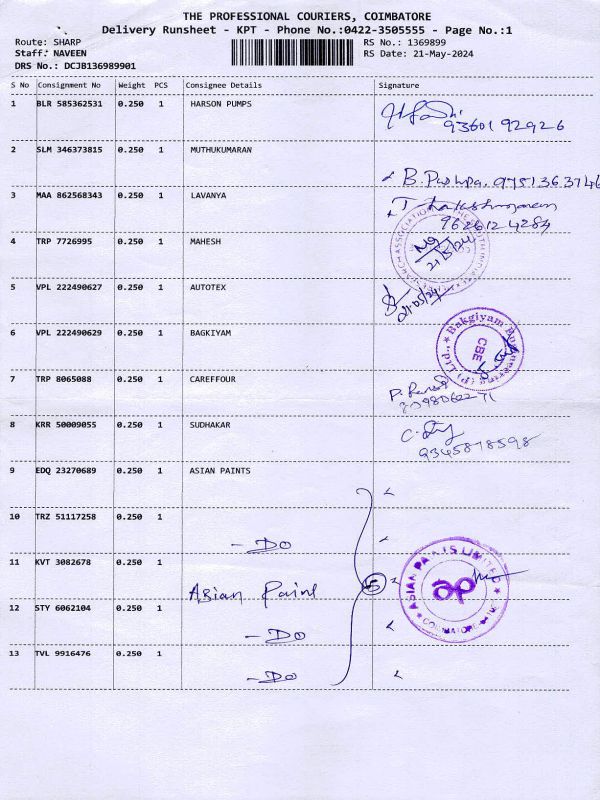 THE PROFESSIONAL COURIERS, COIMBATORE
Delivery Runsheet - KPT - Phone No.:0422-3505555 - Page No.:1
Route: SHARP
RS No.: 1369899
Staff: NAVEEN
RS Date: 21-May-2024
DRS No.: DCJB136989901
S No Consignment No Weight PCS Consignee Details Signature
1 BLR 585362531 0.250 1 HARSON PUMPS
93601 92926
2 SLM 346373815 0.250 1 MUTHUKUMARAN
B. Pushpa. 9751363746
3 MAA 862568343 0.250 1 LAVANYA
9626124284
4 TRP 7726995 0.250 1 MAHESH
21/5/24
5 VPL 222490627 0.250 1 AUTOTEX
21/05/24
6 VPL 222490629 0.250 1 BAGKIYAM
Bakgiyam Engineering (P) Ltd., ★
CBE
7 TRP 8065088 0.250 1 CAREFFOUR
8 KRR 50009055 0.250 1 SUDHAKAR
9345878598
9 EDQ 23270689 0.250 1 ASIAN PAINTS
10 TRZ 51117258 0.250 1
- DO
11 KVT 3082678 0.250 1
Asian Paint
5
ASIAN PAINTS LIMITED
ap
COIMBATORE
12 STY 6062104 0.250 1
- DO
13 TVL 9916476 0.250 1
- DO